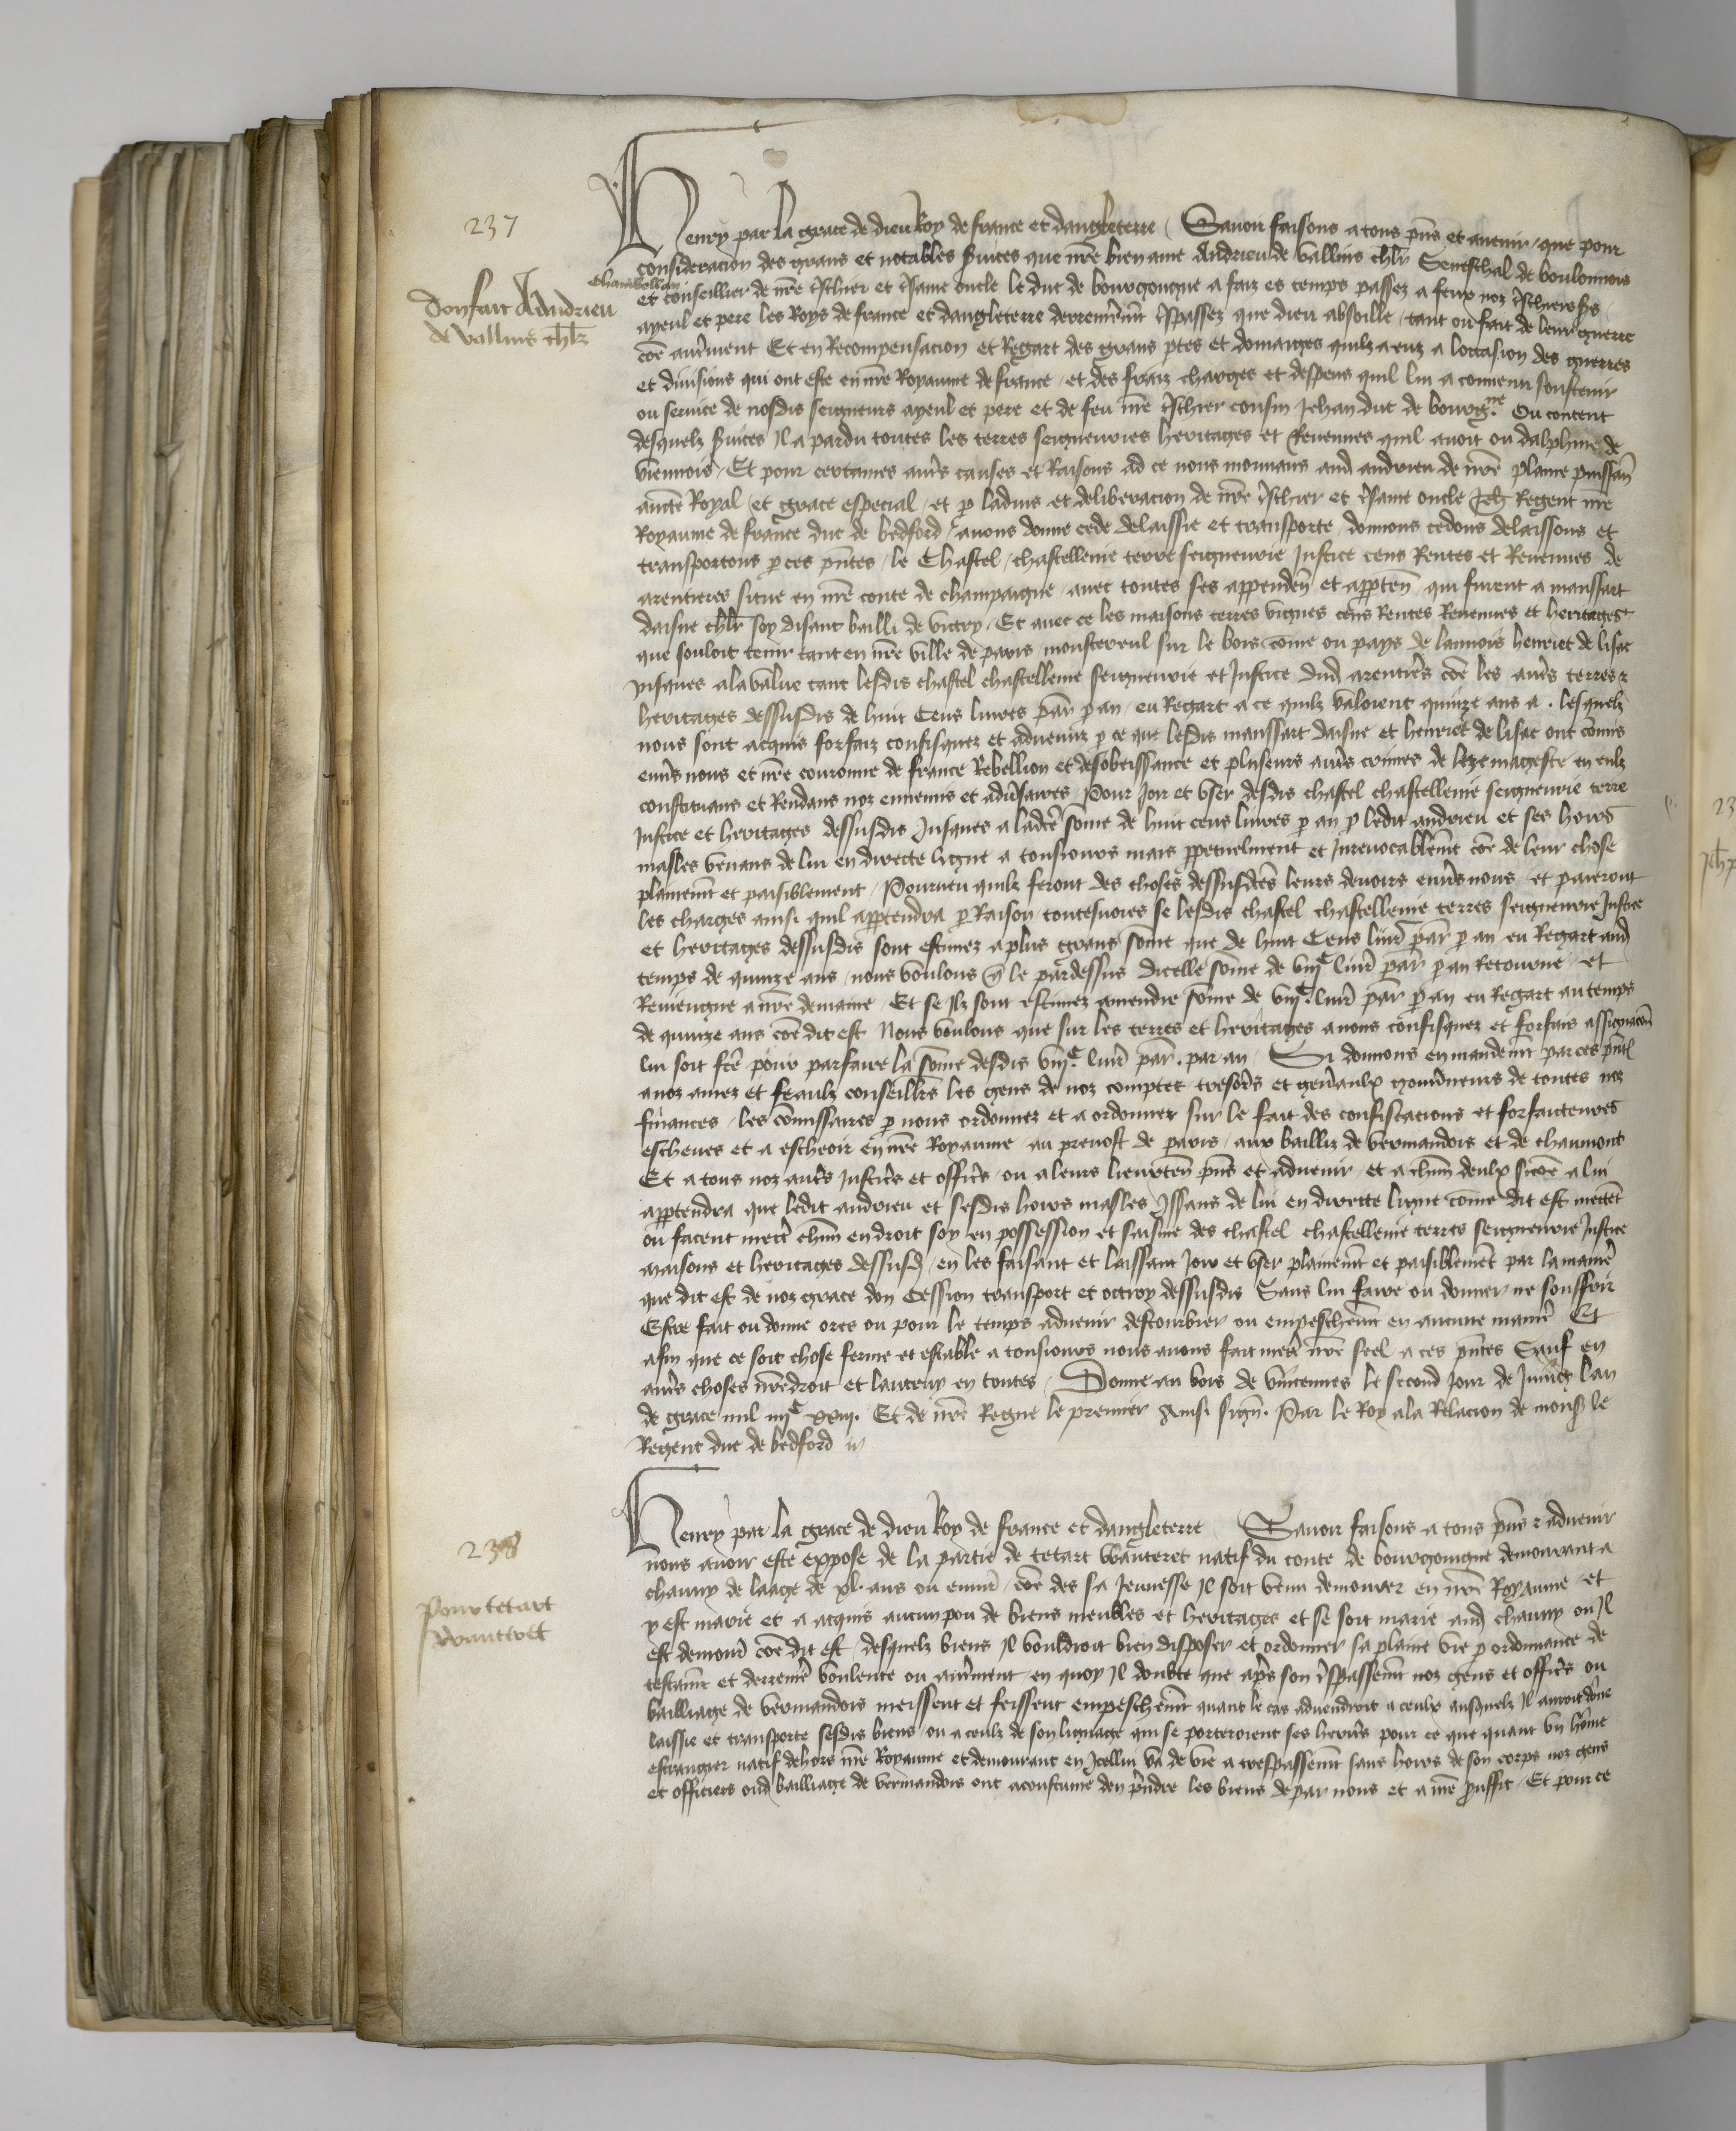 237
Henry par la grace de dieu Roy de france et dangleterre Sauoir faisons a tous pns et auenir que pour
consideracion des grans et notables suices que nre bien ame Andrieu de vallins chlr Seneschal de boulonnois
chambellan
et conseillier de nre tschier et tsame oncle le duc de bourgongne a faiz es temps passez a feux noz tschiers srs
Don fait A Andrieu
de vallins chlr
ayeul et pere les Roys de france et dangleterre derrenremt tspassez que dieu absoille tant ou fait de leur guerre
coe autrement Et en Recompensacion et Regart des grans ptes et domaiges quilz a euz a loccasion des guerres
et diuisions qui ont este en nre Royaume de france et des fraiz charges et despens quil lui a conuenu soustenir
ou seruice de nosdis seigneurs ayeul et pere et de feu nre tschier cousin Jehan duc de bourgne Ou content
desquelz suices Il a pardu toutes les terres seigneuries heritages et Reuenues quil auoit ou dalphine de
viennois Et pour certaines aus causes et Raisons ad ce nous mouuans aud andrieu de nre plaine puissan
aucte Royal et grace especial et p laduis et deliberacion de nre tschier et tsame oncle Jeh Regent nre
Royaume de france duc de bedford auons donne cede delaissie et transporte donnons cedons delaissons et
transportons p ces pntes le Chastel chastellenie terre seigneurie Justice cens Rentes et Reuenues de
arentieres situe en nre conte de champaigne auec toutes ses appenden et apparten qui furent a manssart
daisne chlr soy disant bailli de vitry Et auec ce les maisons terres vignes cens Rentes Reuenues et heritages
que souloit tenir tant en nre ville de paris monstereul sur le bois come ou pays de lannois henriet de lisac
Jusques a la value tant lesdis chastel chastellenie seigneurie et Justice dud arentiers coe les aus terres et
heritages dessusdis de huit Cens liures par p an eu Regart a ce quilz valoient quinze ans a . lesquelz
nous sont acquis forfaiz confisquez et aduenuz p ce que lesdis manssart daisne et henriet de lisac ont comis
enus nous et nre couronne de france Rebellion et desobeissance et pluseurs aus crimes de leze mageste en eulx
constituans et Rendans noz ennemis et adusaires Pour Joir et user desdis chastel chastellenie seigneurie terre
Justice et heritages dessusdis Jusques a ladce some de huit cens liures p an p ledit andrieu et ses hoirs
masles venans de lui en directe ligne a tousiours mais ppetuelment et Inreuocablemt coe de leur chose
plainemt et paisiblement Pourueu quilz feront des choses dessusdces leurs deuoirs enus nous et paieront
les charges ainsi quil appartendra p Raison toutesuoies se lesdis chastel chastellenie terres seigneurie Justice
et heritages dessusdis sont estimez a plus grans some que de huit Cens liur par p an eu Regart aud
temps de quinze ans nous voulons q le pardessus dicelle some de viijc liur par p an Retourne et
Reuiengne a nre demaine Et se Ilz sont estimez a mendre some de viijc liur par p an eu Regart au temps
de quinze ans coe dit est Nous voulons que sur les terres et heritages a nous confisquez et forfais assignacion
lui soit fce pour parfaire la some desdis viijc liur par . par an Si donnons en mandemt par ces pntes
a noz amez et feaulz conseillrs les gens de noz comptes tresors et genaulx gouuneurs de toutes noz
finances les comissaires p nous ordonnez et a ordonner sur le fait des confiscacions et forfaictures
escheues et a escheoir en nre Royaume au preuost de paris aux bailliz de vermandois et de chaumont
Et a tous noz aus Justics et offics ou a leurs lieuxten pns et aduenir et a chun deulx sicoe a lui
appartendra que ledit andrieu et sesdis hoirs masles Issans de lui en directe ligne come dit est mettent
ou facent mectr chun endroit soy en possession et saisine des chastel chastellenie terres seigneurie Justice
maisons et heritages dessusd en les faisant et laissant Joir et user plainemt et paisiblement par la manie
que dit est de noz grace don Cession transport et octroy dessusdis Sans lui faire ou donner ne souffrir
Estre fait ou donne ores ou pour le temps aduenir destourbier ou empeschemt en aucune manie Et
afin que ce soit chose ferme et estable a tousiours nous auons fait mectr nre seel a ces pntes Sauf en
aus choses nre droit et lautruy en toutes Donne au bois de vincennes le second Jour de Juing lan
de grace mil iiijc xxiij. Et de nre Regne le premier Ainsi sign. Par le Roy a la Relacion de mons le
Regent duc de bedford
238
Henry par la grace de dieu Roy de france et dangleterre Sauoir faisons a tous pns et aduenir
nous auoir este expose de la partie de tetart wauteret natif du conte de bourgoingne demourant a
chauny de laage de xl. ans ou enuir coe des sa Jeunesse Il soit venu demourer en nre Royaume et
Pour tetart
Wauteret
y est marie et a acquis aucun pou de biens meubles et heritages et se soit marie aud chauny ou Il
est demour coe dit est desquelz biens Il vouldroit bien disposer et ordonner sa plaine vie p ordonnance de
testamt et derreniere voulente ou autrement en quoy Il doubte que aps son tspassemt noz gens et offics ou
bailliage de vermandois meissent et feissent empeschemt quant le cas aduendroit a ceulx ausquelz Il auroit done
laissie et transporte sesdis biens ou a ceulz de son lignage qui se porteroient ses heritrs pour ce que quant un home
estrangier natif dehors nre Royaume et demourant en Icellui va de vie a trespassemt sans hoirs de son corps noz gens
et officiers oud bailliage de vermandois ont acoustume den prndre les biens de par nous et a nre prouffit Et pour ce